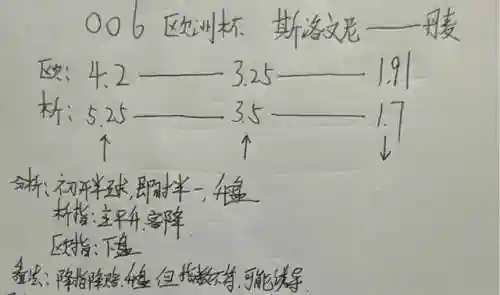 006 欧洲杯 斯洛文尼——丹麦
欧: 4.2 —— 3.25 —— 1.91
析: 5.25 —— 3.5 —— 1.7
↑ ↑ ↓
分析: 初开半球, 即时半一, 升盘
析指: 主平升, 客降
欧指: 下盘
看法: 降指降赔, 升盘 但 指数不夸, 可能诱导